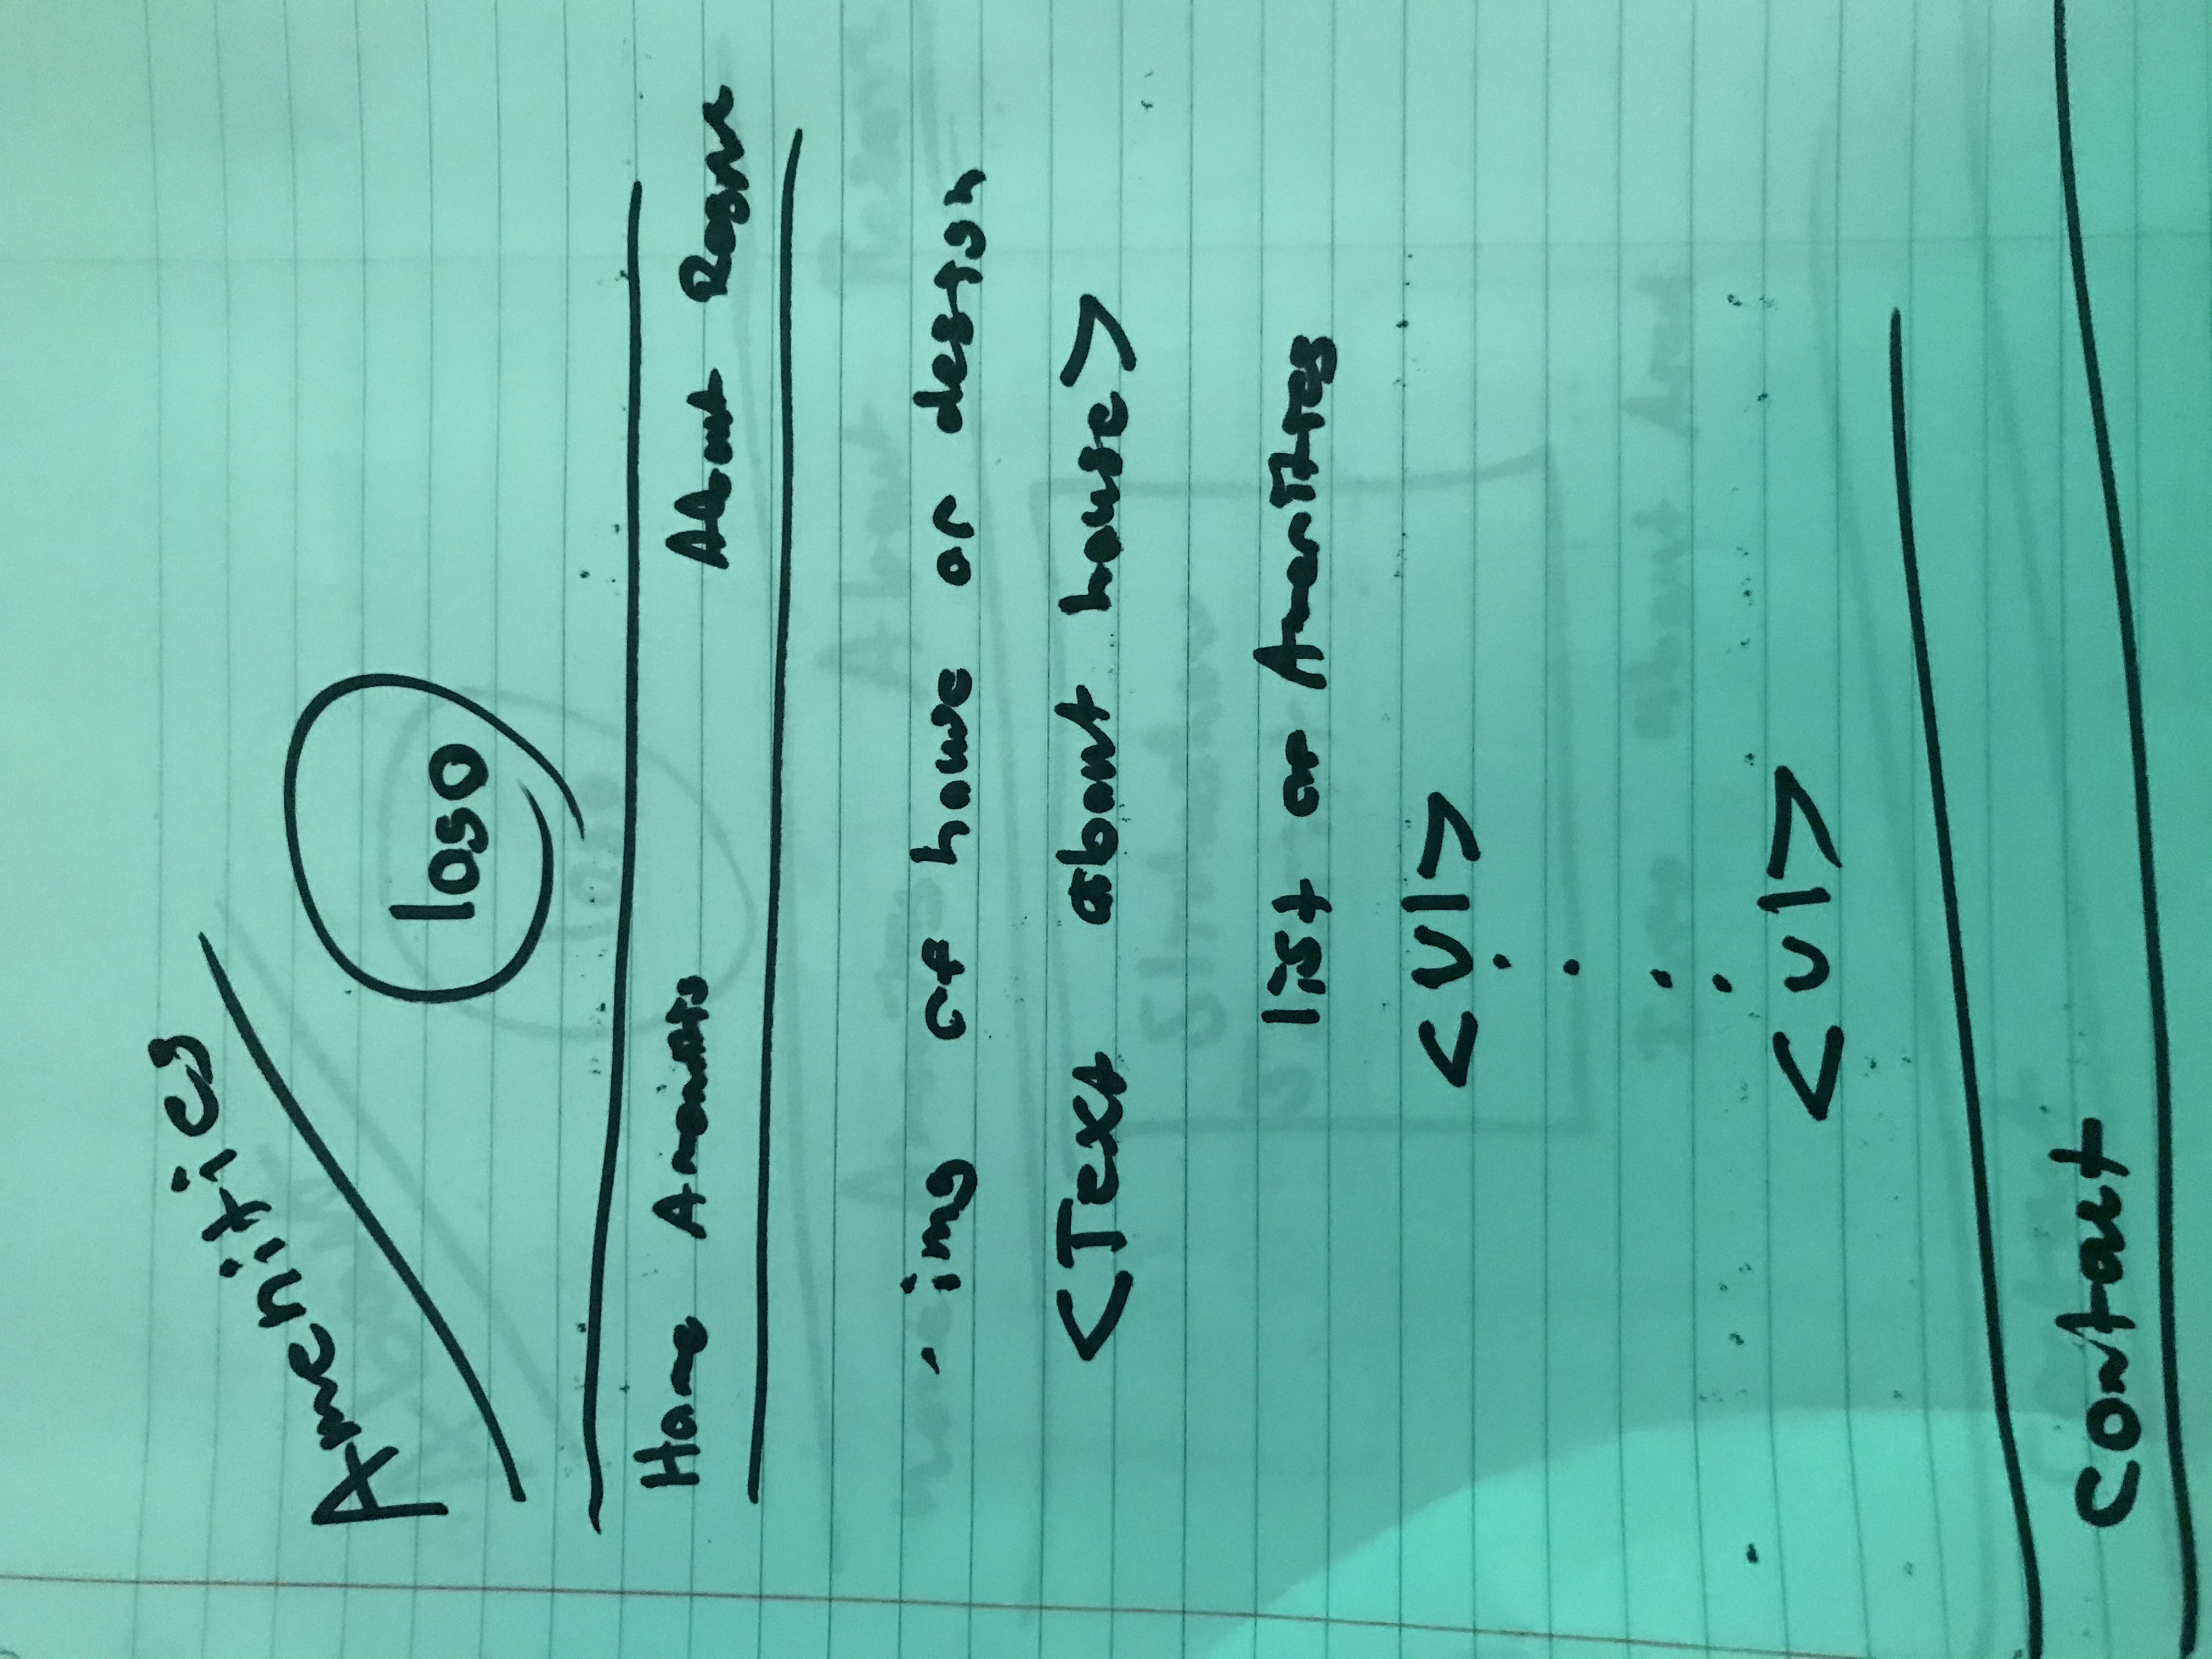 Amenities
logo
Home Amenitis About
img of house or design
<Text about house>
list or Amenities
<ul>
<ul>
contact